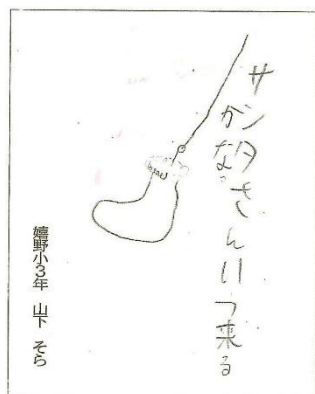 サンタさんいつ来る
かなっ
嬉野小3年 山下 そら